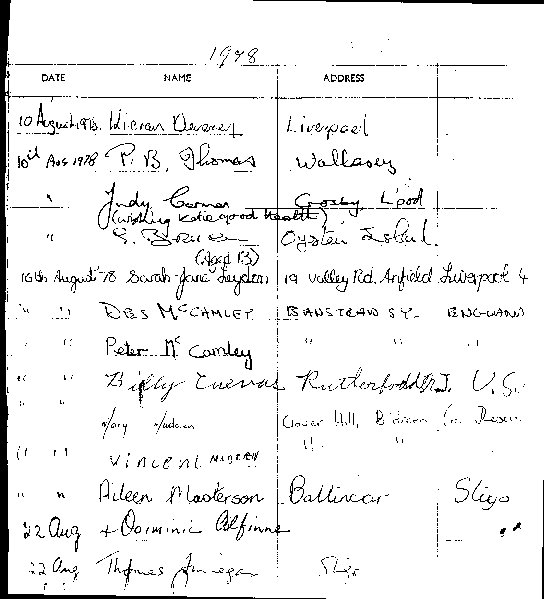 1978
DATE NAME ADDRESS
10 August 1978. Kieran Devaney Liverpool
10th Aug 1978 P. B. Thomas Wallasey
" Judy Crosby L'pool
(wishing Katie good health)
" S. Oyster
(Aged 13)
16th August '78 Sarah-Jane Leyden 19 Valley Rd. Anfield Liverpool 4
" " DES McCAMLEY BANSTEAD SY. ENGLAND
Peter Mc Camley " "
" " Billy Cuevas Rutherford N.J. U.S.
" " Mary Clover Hill,
" " VINCENT " "
" " Aileen Masterson Ballincar Sligo
22 Aug + Dominic
22 Aug Thomas Finnegan Sligo